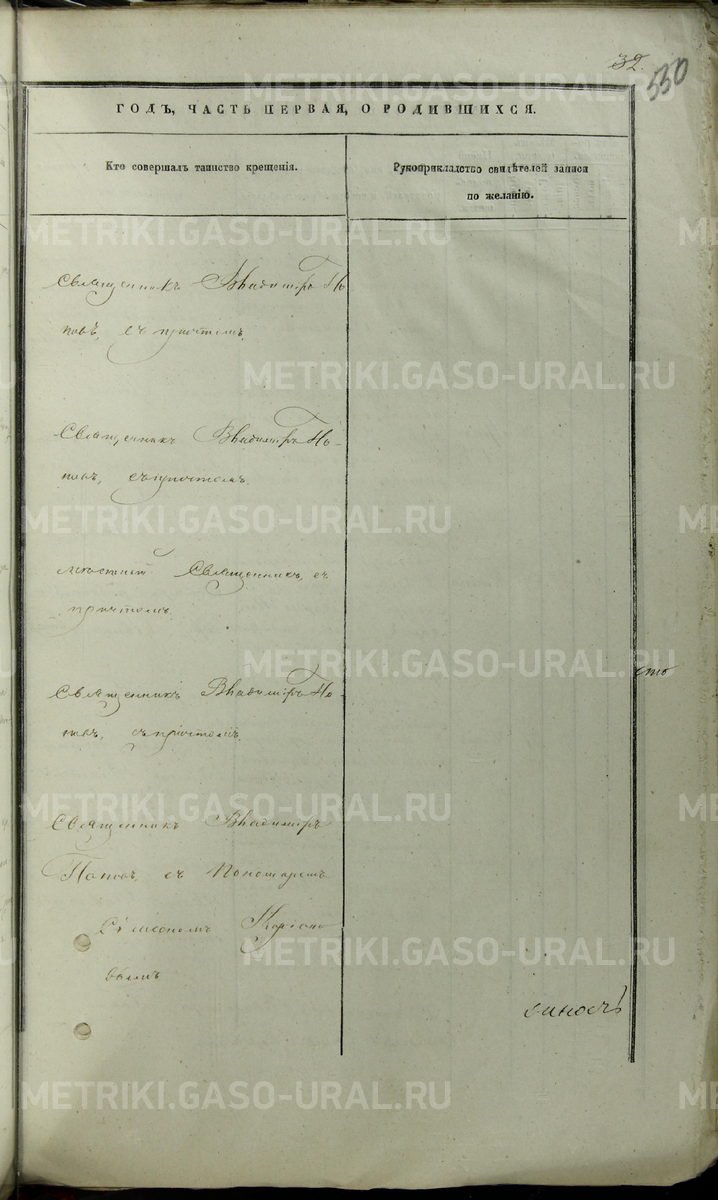 32.
530
ГОДЪ, ЧАСТЬ ПЕРВАЯ, О РОДИВШИХСЯ.
Кто совершалъ таинство крещенія.
Рукоприкладство свидѣтелей записи
по желанію.
Священникъ Владиміръ По
повъ, съ причтомъ.
Священникъ Владиміръ По-
повъ, съ причтомъ.
Священникъ, съ
причтомъ.
Священникъ Владиміръ По-
повъ, съ причтомъ.
Священникъ Владиміръ
Поповъ, съ Пономаремъ
METRIKI.GASO-URAL.RU